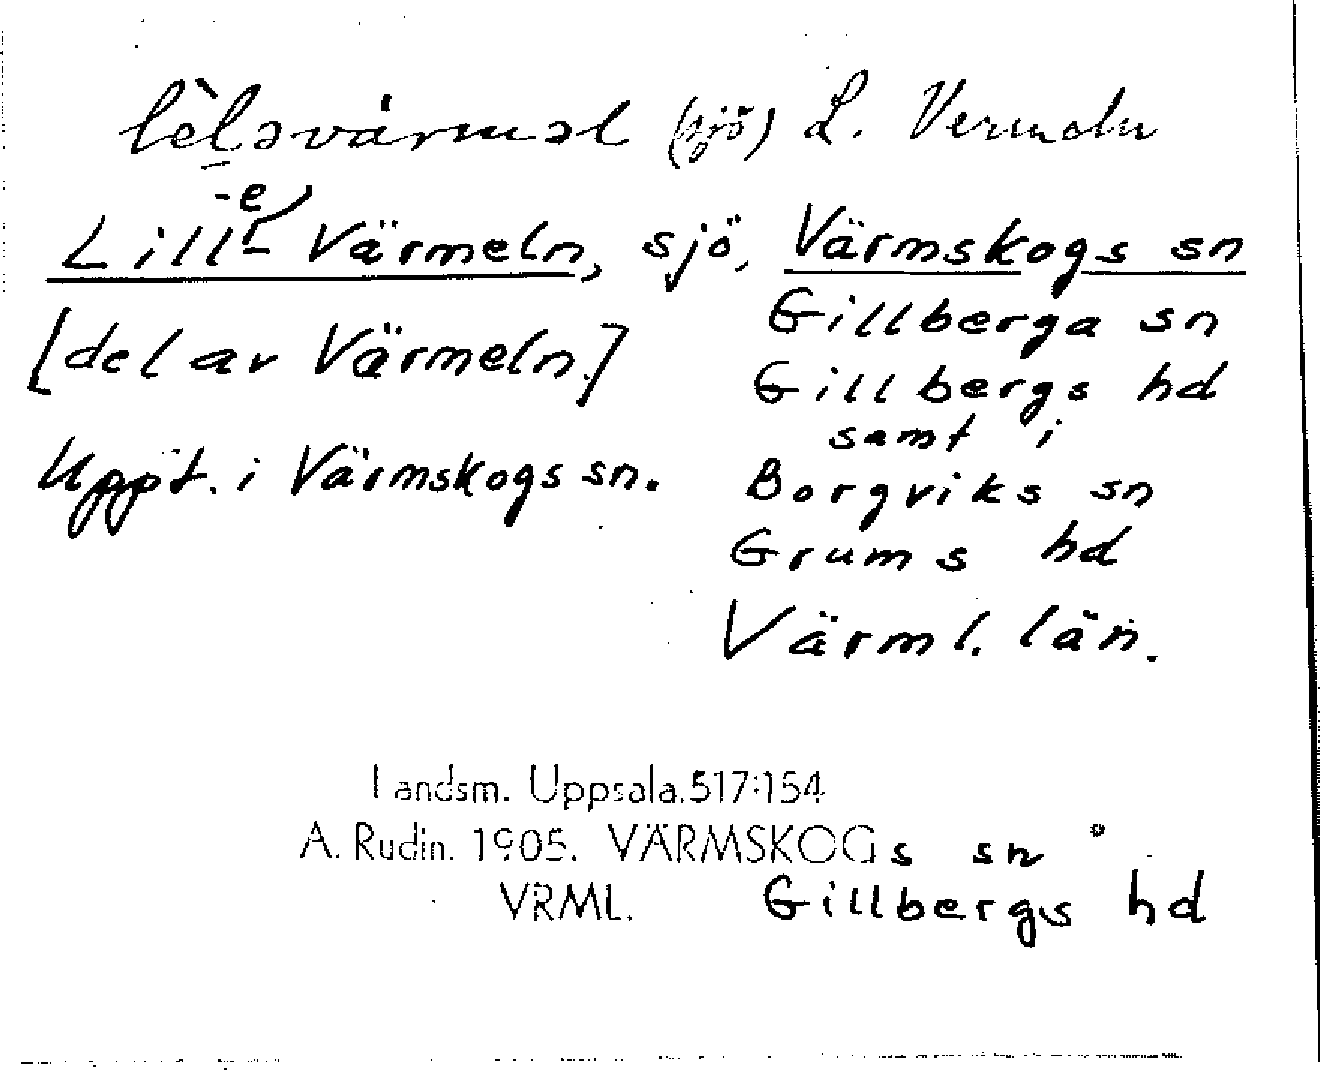 lèləvärməl (sjö) L. Vermeln
-e
Lill- Värmeln, sjö, Värmskogs sn
Gillberga sn
[del av Värmeln.] Gillbergs hd
samt i
Uppt. i Värmskogs sn. Borgviks sn
Grums hd
Värml. län.
Landsm. Uppsala.517:154
A. Rudin. 1905. VÄRMSKOGs sn
VRML. Gillbergs hd